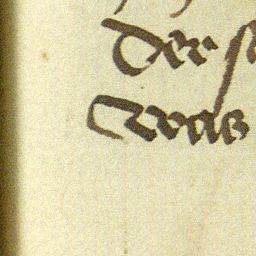 Der
Was